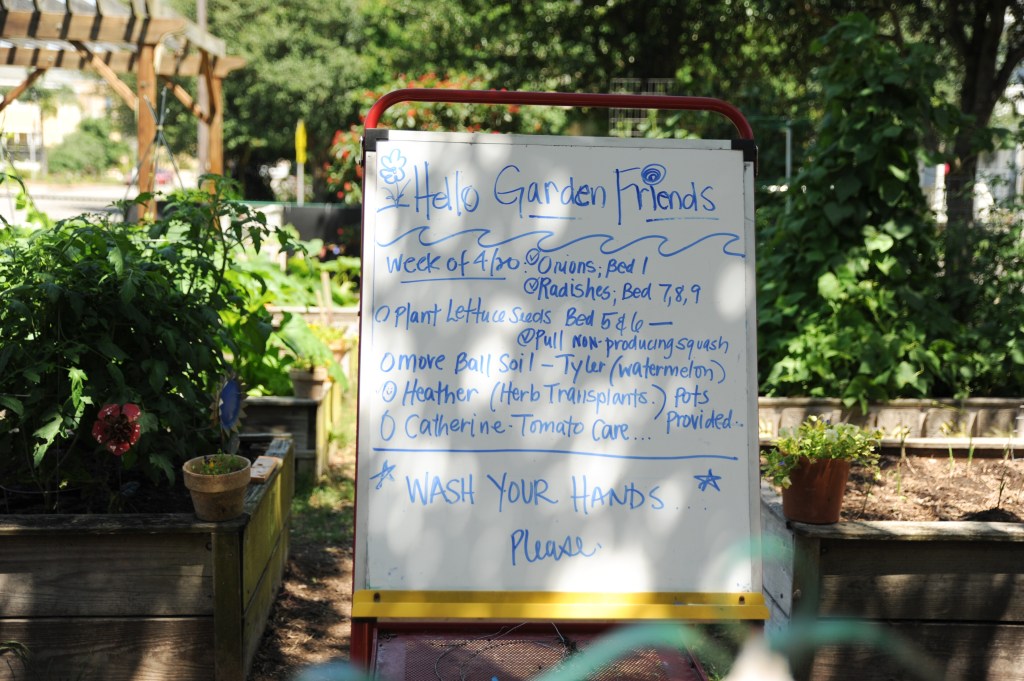 Hello Garden Friends
Week of 4/20: Onions; Bed 1
Radishes; Bed 7,8,9
Plant Lettuce Seeds Bed 5 & 6 —
Pull non-producing squash
Move Ball Soil - Tyler (watermelon)
Heather (Herb Transplants.) Pots
Provided..
Catherine - Tomato Care...
WASH YOUR HANDS....
Please.